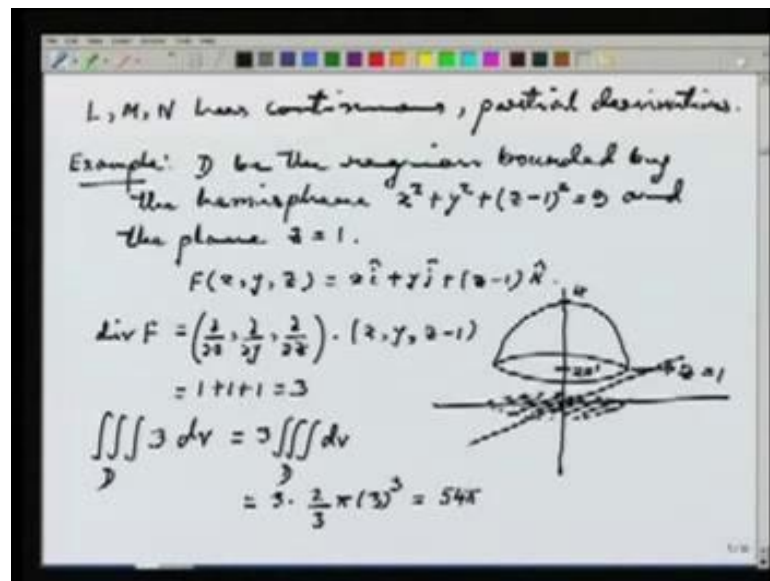 L, M, N has continuous, partial derivatives.
Example: D be the region bounded by
the hemisphere x² + y² + (z-1)² = 9 and
the plane z = 1.
F(x, y, z) = x î + y ĵ + (z-1) k̂.
div F = (∂/∂x, ∂/∂y, ∂/∂z) · (x, y, z-1)
= 1+1+1 = 3
z=1
z=1
∭_D 3 dv = 3 ∭_D dv
= 3 · 2/3 π (3)³ = 54π